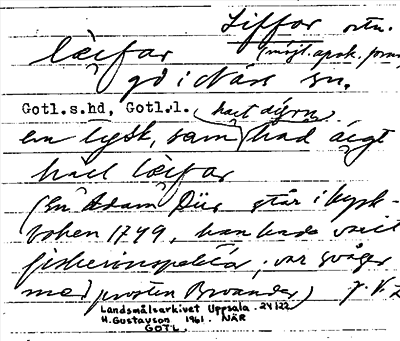 Liffor ortn.
läifar (möjl. apok. form
gd i När sn.
Gotl.s.hd, Gotl.l. hait dýrn
en tysk, sum had äigt
häil läifar
(En Adam Dür står i kyrk-
boken 1749, han hade varit
fiskeriinspektör, var svåger
med prosten Brwander)
Landsmålsarkivet Uppsala 24122
H. Gustavson 1961. NÄR
GOTL.